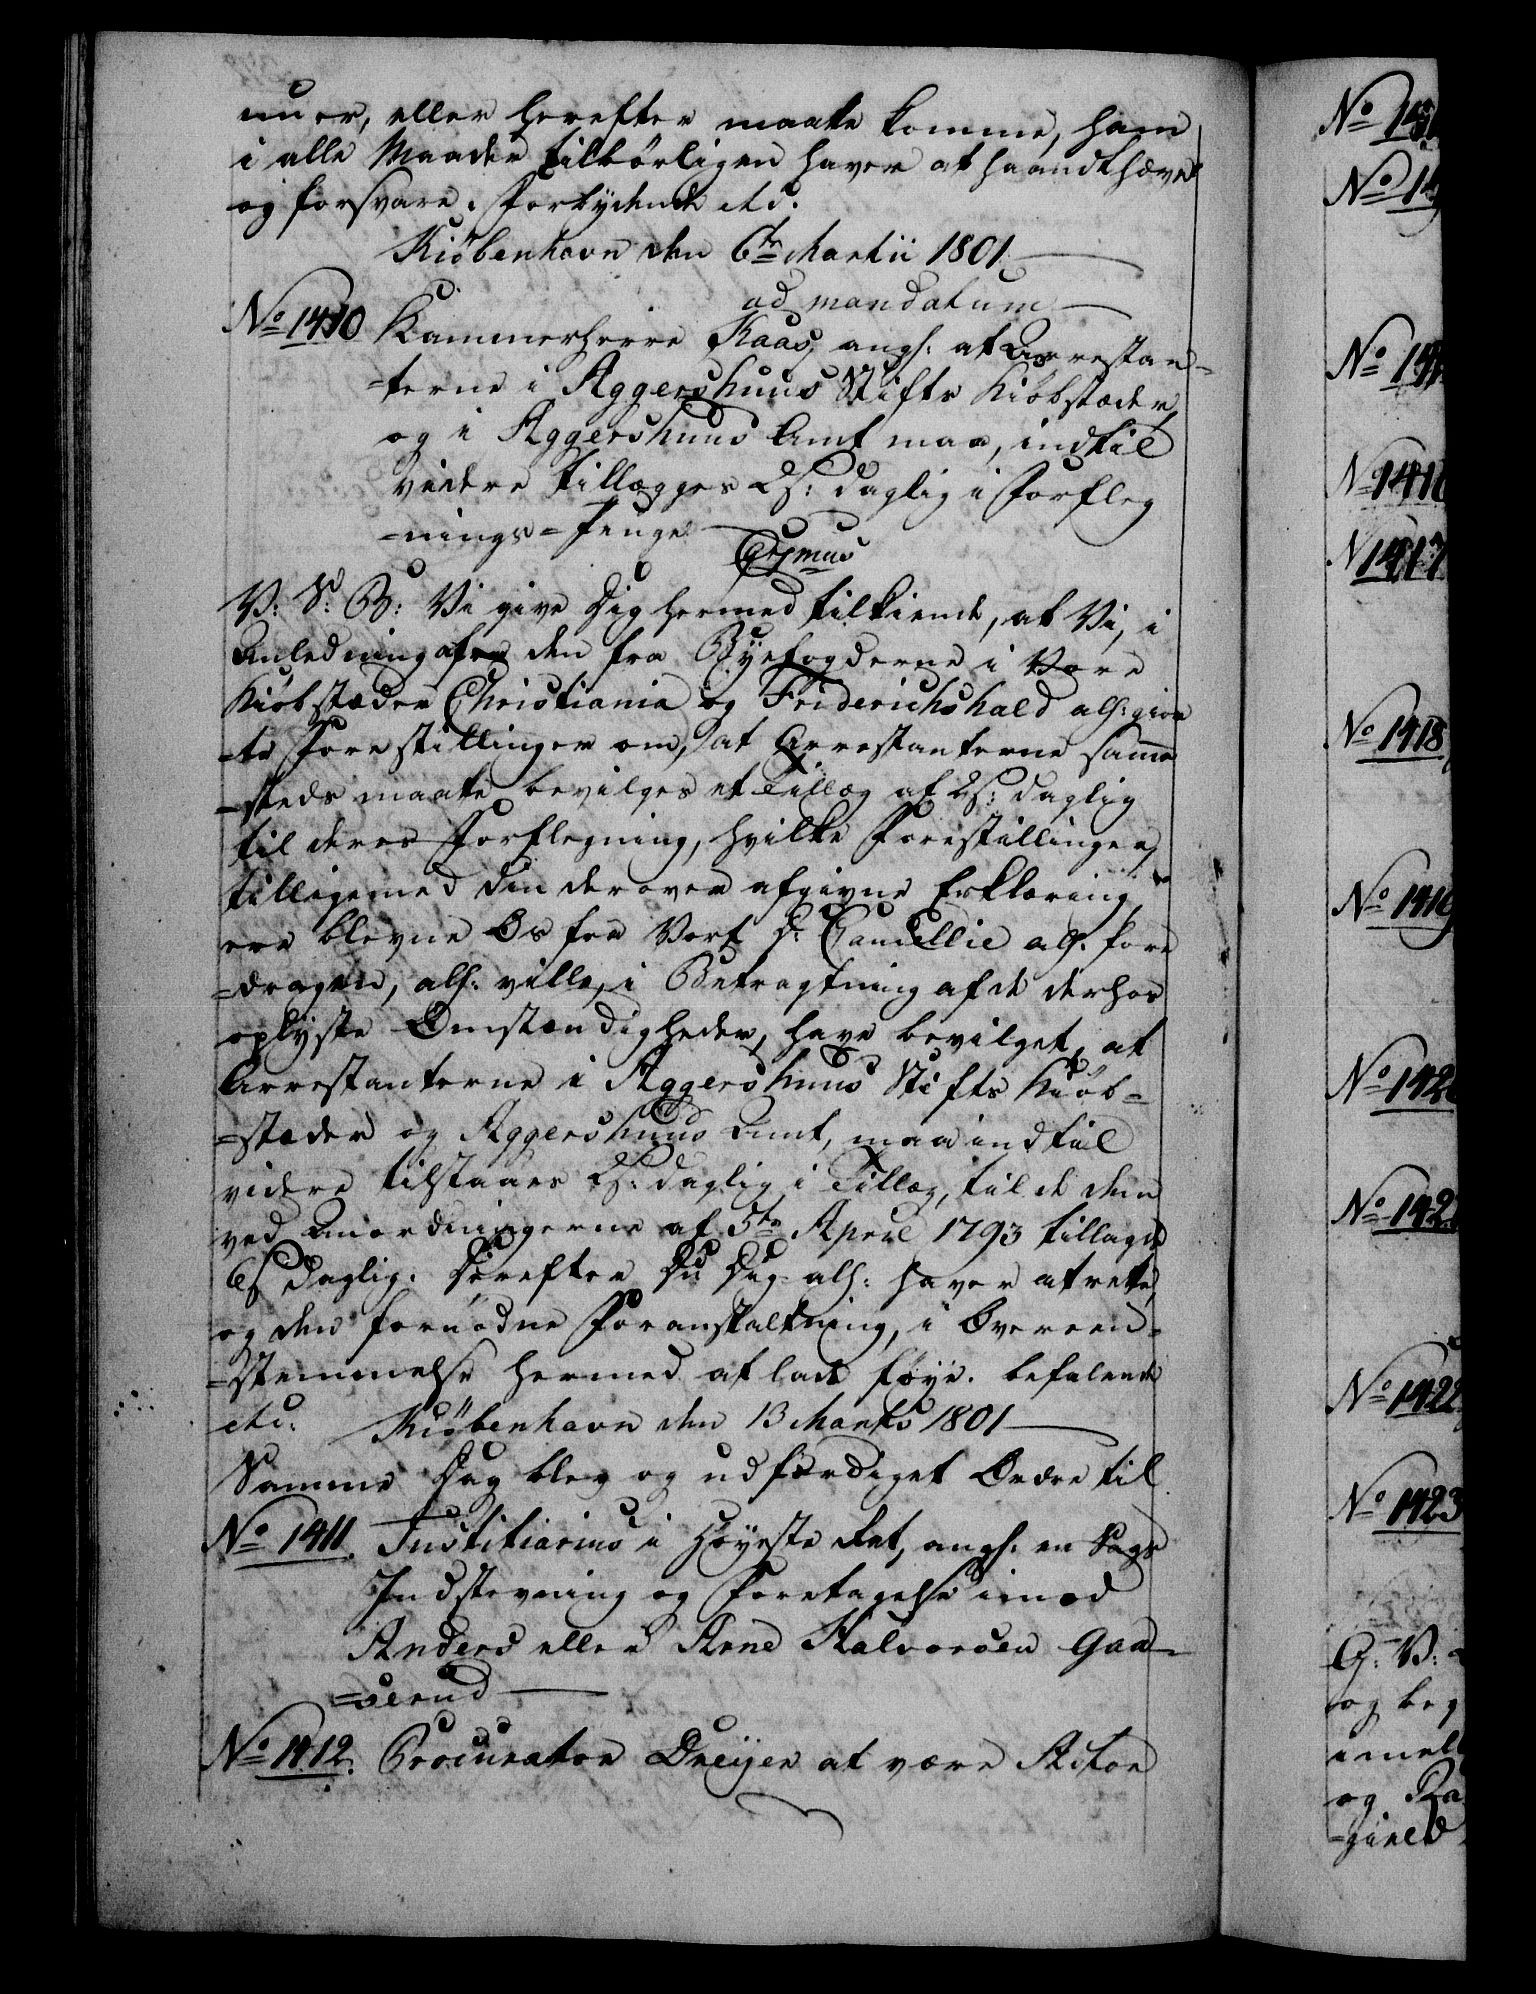 nu er, eller herefter maatte komme, ham
i alle Maader tilbørligen haver at haandthæve
og forsvare. Forbydende etc.
Kiøbenhavn den 6te Martii 1801.
ad mandatum
No 1410 Kammerherre Kaas, angl: at Arrestan-
=terne i Aggershuus Stifts Kiøbstæder,
og i Aggershuus Amt maa, indtil
videre tillægges 2s: daglig i Forfleg
=nings=Penge
V: S: B: Vi give Dig hermed tilkiende, at Vi, i
Anledning af den fra Byefogderne i Vore
Kiøbstæder Christiania og Friderichshald alh: gior
=te Forestillinger om, at Arrestanterne samme
=steds maatte bevilges et Tillæg af 2s: daglig
til deres Forflegning, hvilke Forestillinger,
tilligemed Din derover afgivne Erklæring,
ere blevne Os fra Vort D: Cancellie alh. fore
=dragen, alh: ville, i Betragtning af de derhos
oplyste Omstændigheder, have bevilget, at
Arrestanterne i Aggershuus Stifts Kiøb=
=stæder og Aggershuus Amt, maa indtil
videre tilstaaes 2s: daglig i Tillæg, til de dem
ved Anordningerne af 5te April 1793 tillagde
6s daglig. Derefter Du Dig alh: haver at rette,
og den fornødne Foranstaltning, i Overeen=
=stemmelse hermed at lade føye. Befalende
etc. Kiøbenhavn den 13 Marts 1801
Samme Dag blev og udfærdiget Ordre til
No 1411. Justitiarius i Høyeste Ret, angl. en Sags
Indstevning og Foretagelse imod
Anders eller Arne Halvorsen Gaa-
=serud
No 1412. Procurator Dreijer at være Actor
No 1416
No 1417
No 1418
No 1419
No 1422
No 1423
G: V:
og beg
imel
og Ra